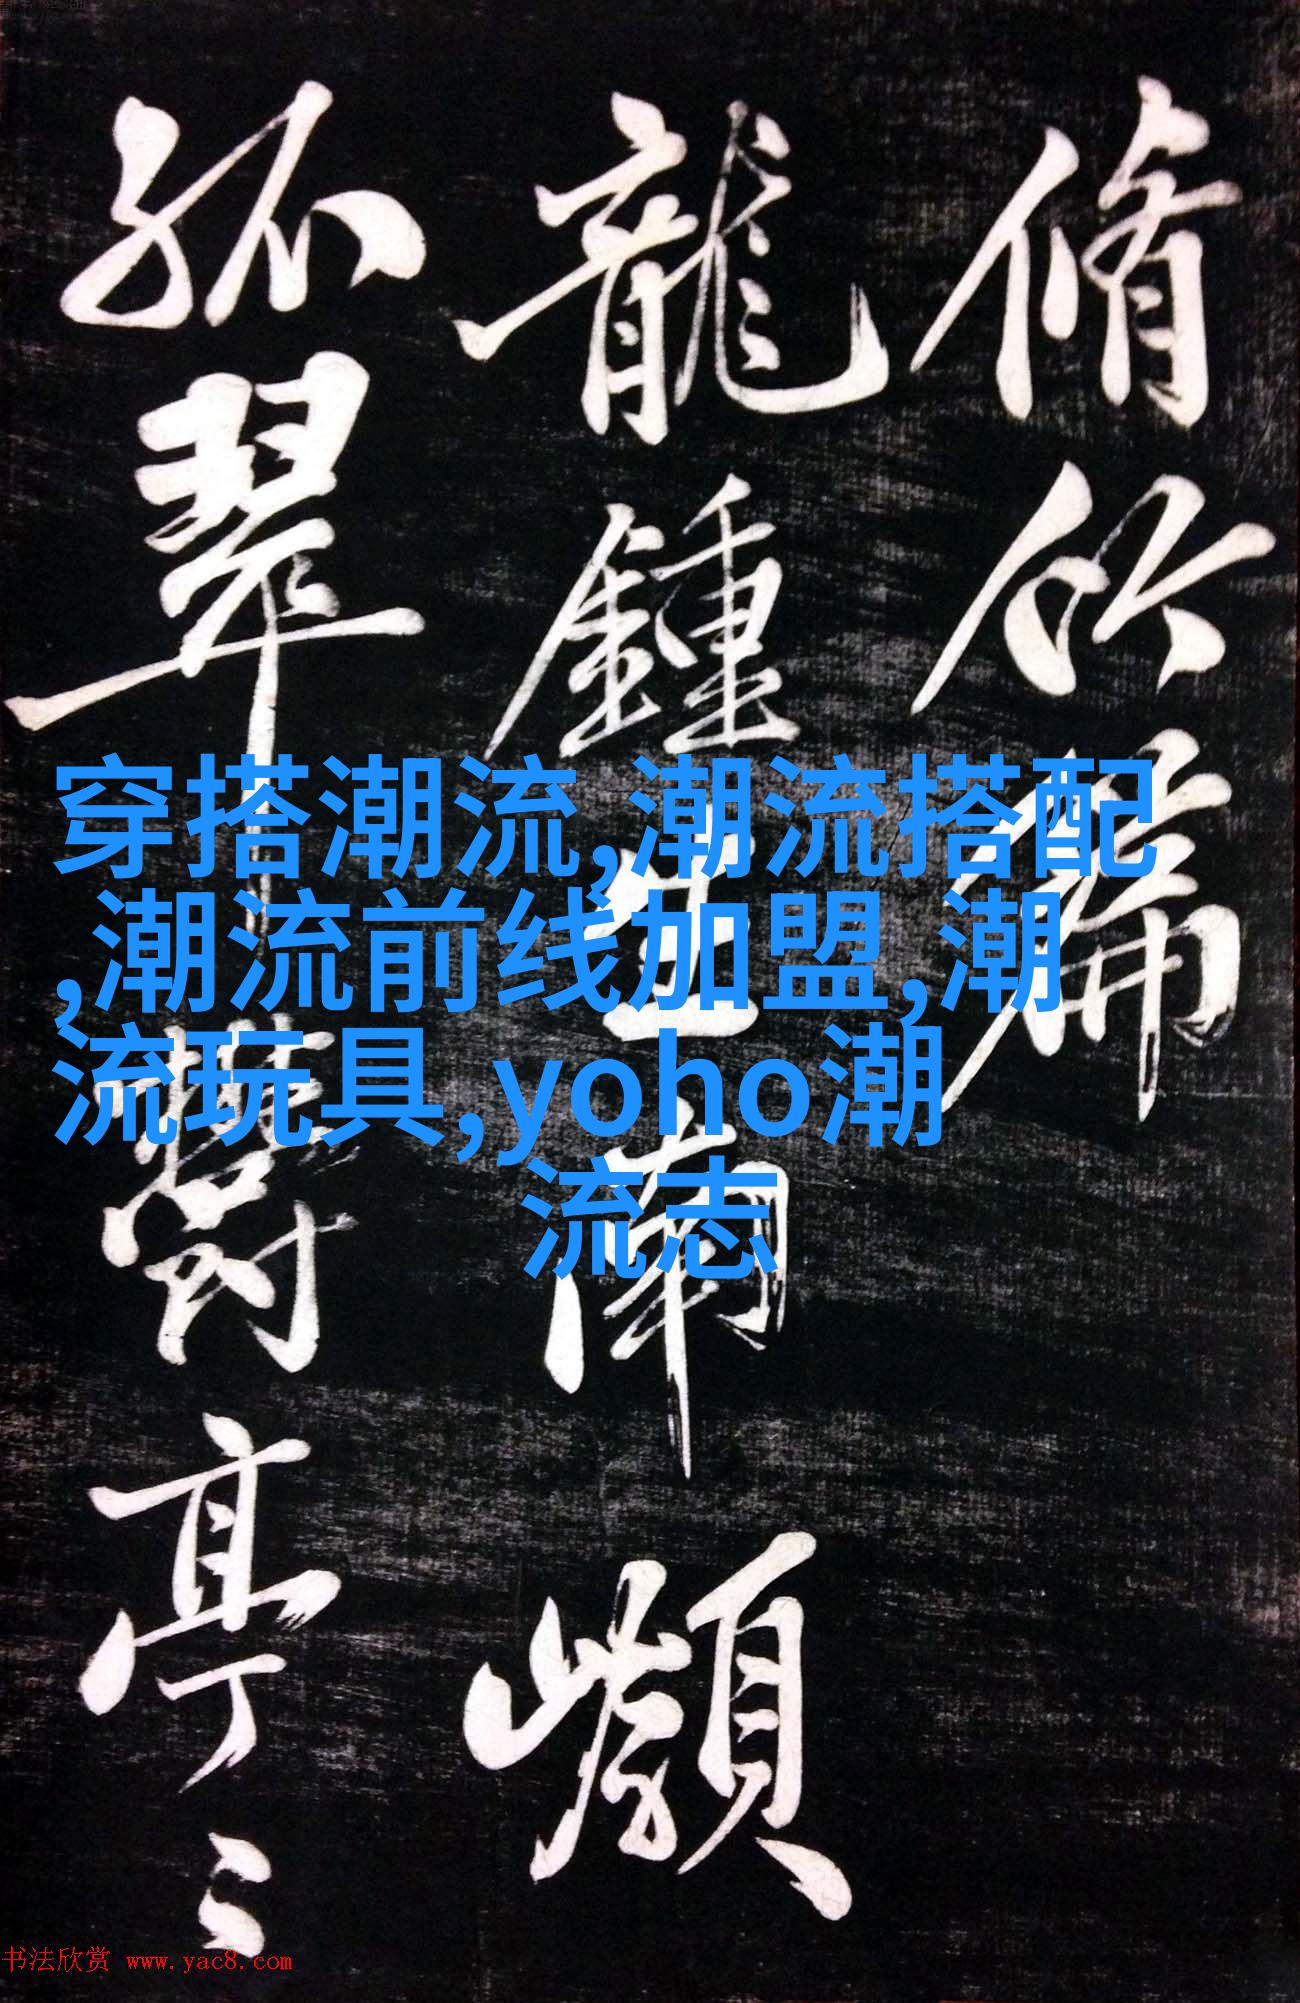 脩竹篇
龍鍾生南
孤翠鬱亭々
穿搭潮流,潮流搭配
,潮流前线加盟,潮
流玩具,yoho潮
流志
书法欣赏 www.yac8.com